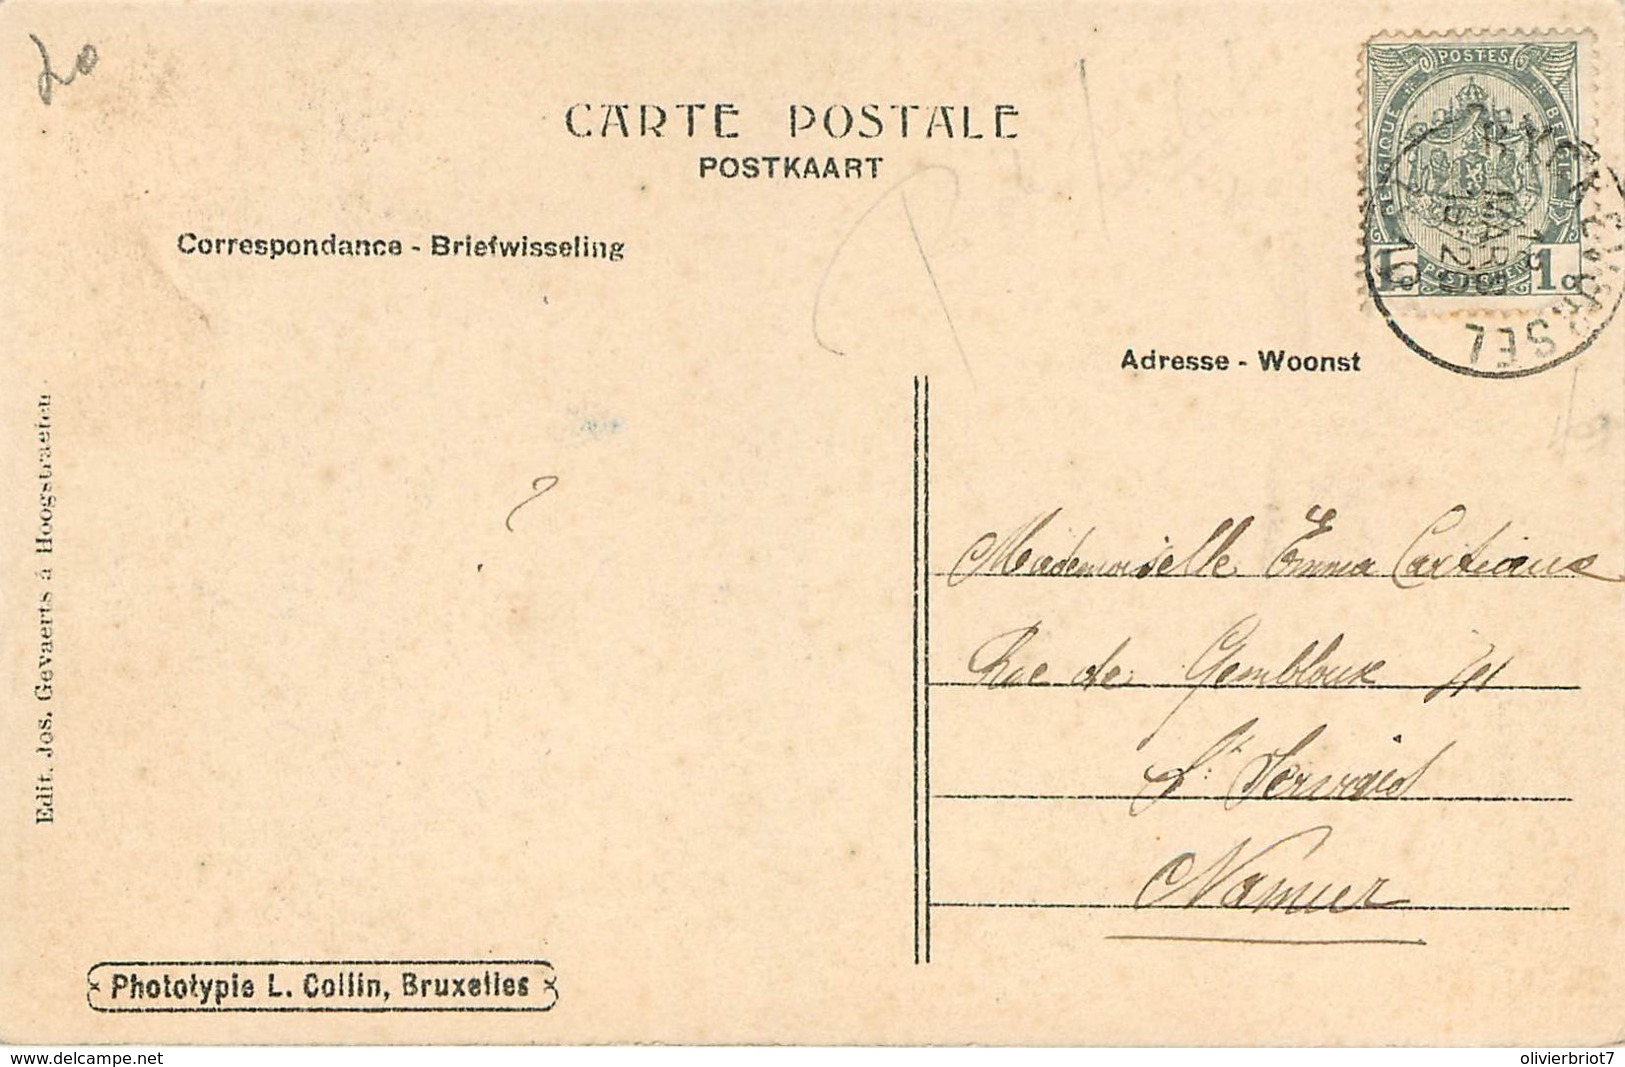 20
CARTE POSTALE
POSTKAART
POSTES
BELGIQUE
BELGIË
POSTERIJEN
1c
1c
MARS
SEL
Correspondance - Briefwisseling
Adresse - Woonst
?
Mademoiselle Emma
Rue de Gembloux
St Servais
Namur
Edit. Jos. Gevaerts à Hoogstraeten.
Phototypie L. Collin, Bruxelles
www.delcampe.net
olivierbriot7